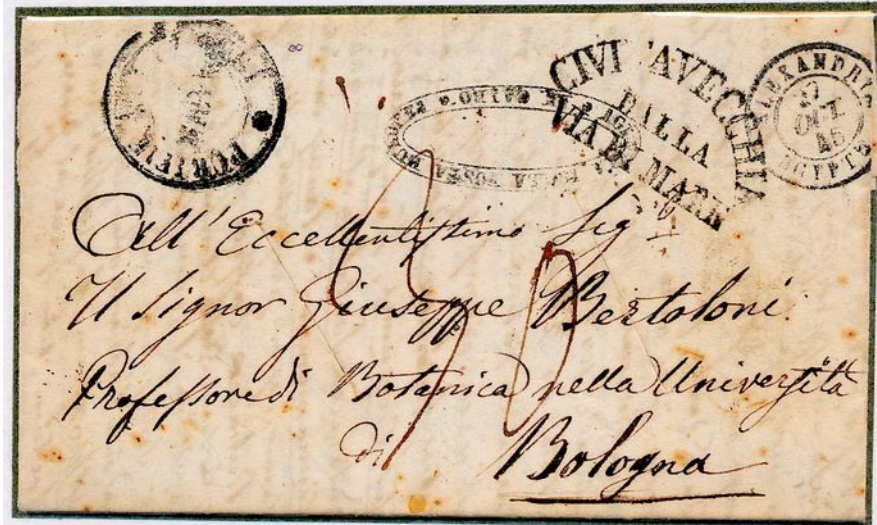 CIVITAVECCHIA
DALLA
VIA DI MARE
ALEXANDRIE
17
OCT
45
EGYPTE
All' Eccellentissimo Sigr
Il Signor Giuseppe Bertoloni
Professore di Botanica nella Università
di Bologna